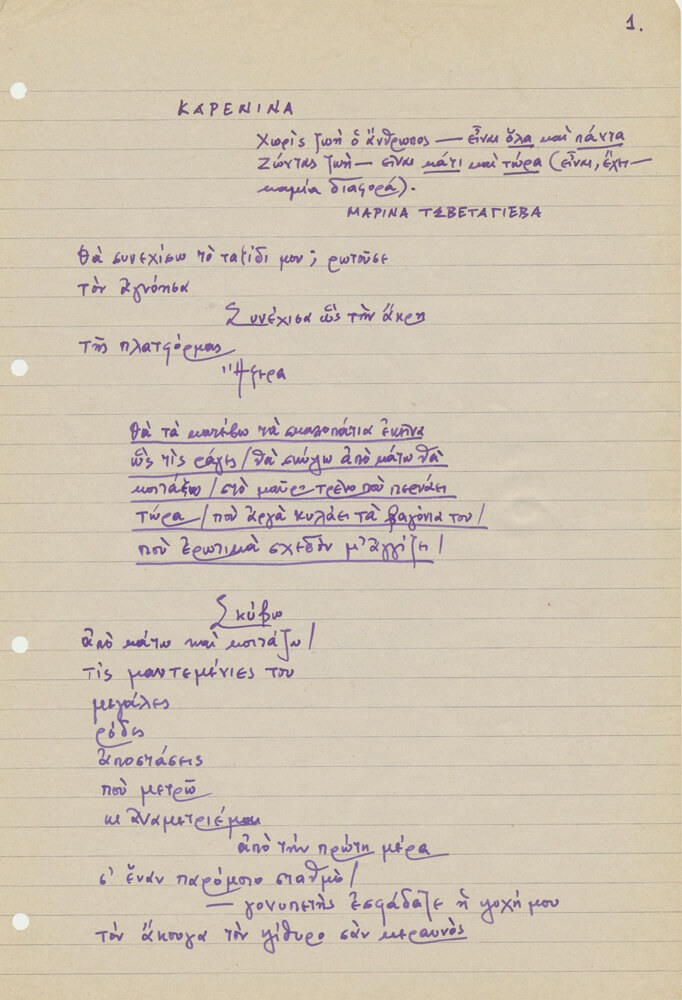 1.
ΚΑΡΕΝΙΝΑ
Χωρὶς ζωὴ ὁ ἄνθρωπος — εἶναι ὅλα καὶ πάντα
Ζώντας ζωὴ — εἶναι κάτι καὶ τώρα (εἶναι, ἔχει —
καμία διαφορά).
ΜΑΡΙΝΑ ΤΣΒΕΤΑΓΙΕΒΑ
Θὰ συνεχίσω τὸ ταξίδι μου; ρωτοῦσε
τὸν ἀγνόησα
Συνέχισα ὣς τὴν ἄκρη
τῆς πλατφόρμας
Ἤξερα
θὰ τὰ κατέβω τὰ σκαλοπάτια ἐκεῖνα
ὣς τὶς ράγες / θὰ σκύψω ἀπὸ κάτω θὰ
κοιτάξω / στὸ μαῦρο τρένο ποὺ περνάει
τώρα / ποὺ ἀργὰ κυλάει τὰ βαγόνια του /
ποὺ ἐρωτικὰ σχεδὸν μ' ἀγγίζει /
Σκύβω
ἀπὸ κάτω καὶ κοιτάζω /
τὶς μαντεμένιες του
μεγάλες
ρόδες
ἀποστάσεις
ποὺ μετρῶ
κι ἀναμετριέμαι
ἀπὸ τὴν πρώτη μέρα
σ' ἕναν παρόμοιο σταθμὸ /
— γονυπετὴς ἐσφάδαζε ἡ ψυχή μου
τὸν ἄκουγα τὸν ψίθυρο σὰν κεραυνὸς